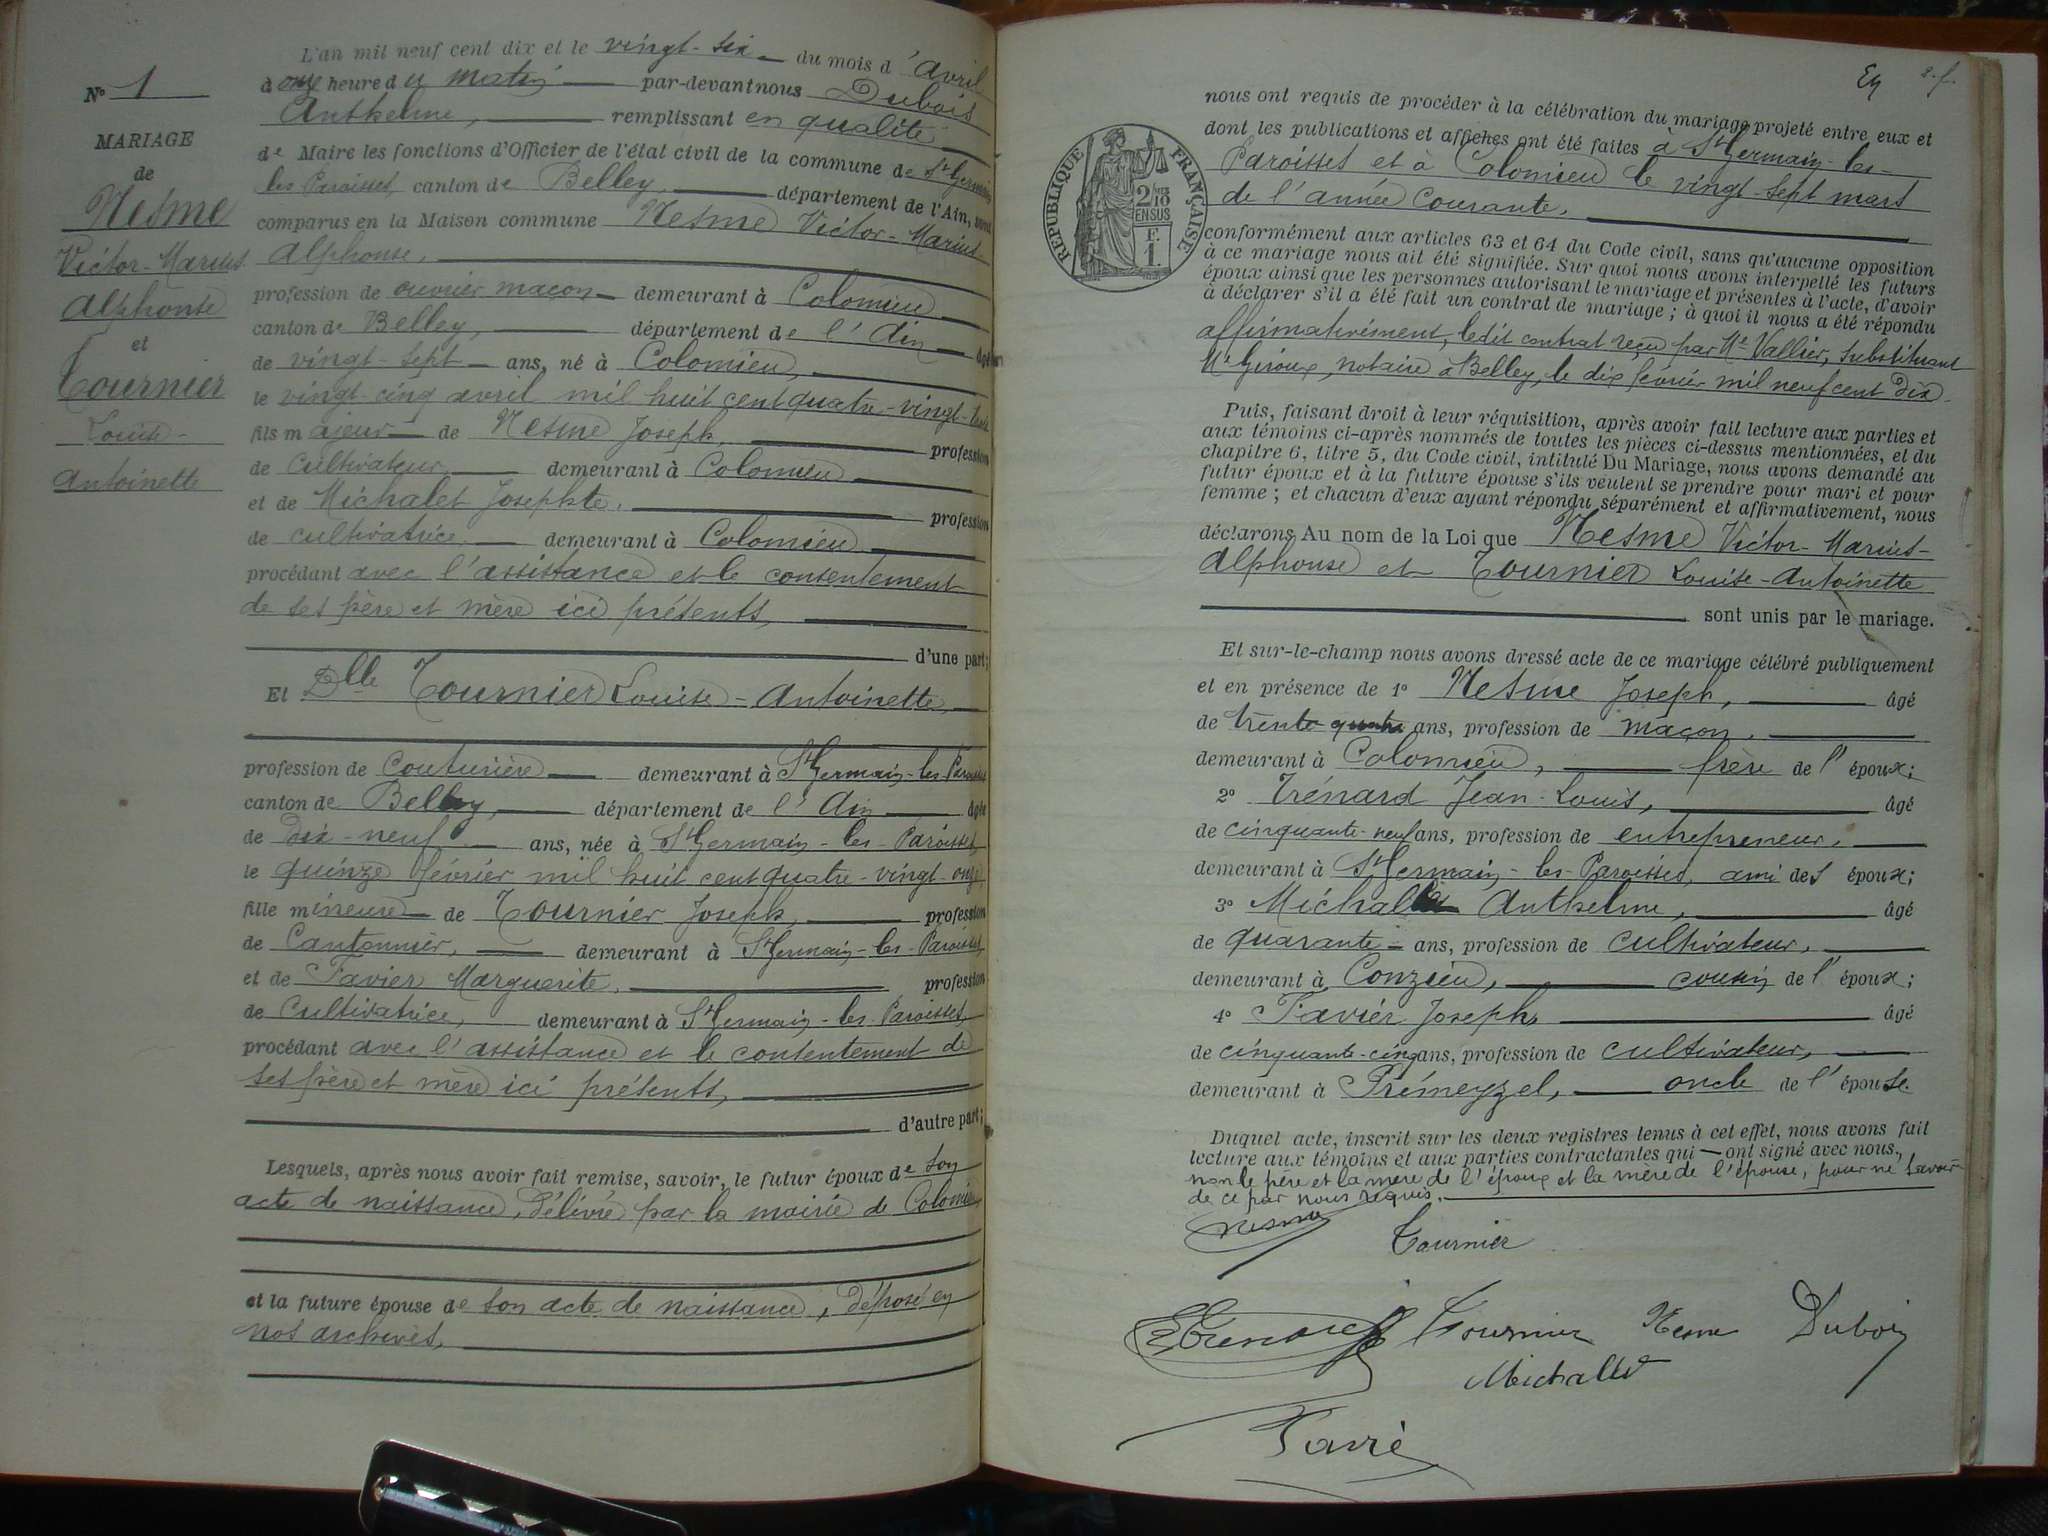 L'an mil neuf cent dix et le vingt-six du mois d'Avril
à onze heure du matin par-devant nous Dubois
Anthelme, remplissant en qualité
de Maire les fonctions d'Officier de l'état civil de la commune de St Germain
les Paroisses, canton de Belley, département de l'Ain, sont
comparus en la Maison commune Nesme Victor-Marius-
Alphonse,
profession de ouvrier maçon demeurant à Colomieu
canton de Belley, département de l'Ain âgé
de vingt-sept ans, né à Colomieu,
le vingt-cinq avril mil huit cent quatre-vingt-trois
fils majeur de Nesme Joseph, profession
de cultivateur, demeurant à Colomieu
et de Michalet Josephte, profession
de cultivatrice demeurant à Colomieu
procédant avec l'assistance et le consentement
de ses père et mère ici présents,
d'une part;
Et Dlle Tournier Louise-Antoinette,
profession de Couturière demeurant à St Germain-les-Paroisses
canton de Belley, département de l'Ain âgée
de Dix-neuf ans, née à St Germain-les-Paroisses,
le quinze février mil huit cent quatre-vingt-onze
fille mineure de Tournier Joseph, profession
de Cantonnier, demeurant à St Germain-les-Paroisses,
et de Favier Marguerite, profession
de Cultivatrice, demeurant à St Germain-les-Paroisses,
procédant avec l'assistance et le consentement de
ses père et mère ici présents,
d'autre part;
Lesquels, après nous avoir fait remise, savoir, le futur époux de son
acte de naissance, délivré par la mairie de Colomieu
et la future épouse de son acte de naissance, déposé en
nos archives,
N° 1
MARIAGE
de
Nesme
Victor-Marius
Alphonse
et
Tournier
Louise-
Antoinette
2. f.
nous ont requis de procéder à la célébration du mariage projeté entre eux et
dont les publications et affiches ont été faites à St Germain-les-
Paroisses et à Colomieu le vingt-sept mars
de l'année courante,
RÉPUBLIQUE FRANÇAISE
2/10
EN SUS
F.
1.
conformément aux articles 63 et 64 du Code civil, sans qu'aucune opposition
à ce mariage nous ait été signifiée. Sur quoi nous avons interpellé les futurs
époux ainsi que les personnes autorisant le mariage et présentes à l'acte, d'avoir
à déclarer s'il a été fait un contrat de mariage; à quoi il nous a été répondu
affirmativement, ledit contrat reçu par Me Vallier, substituant
Me Giroux, notaire à Belley, le dix février mil neuf cent dix.
Puis, faisant droit à leur réquisition, après avoir fait lecture aux parties et
aux témoins ci-après nommés de toutes les pièces ci-dessus mentionnées, et du
chapitre 6, titre 5, du Code civil, intitulé Du Mariage, nous avons demandé au
futur époux et à la future épouse s'ils veulent se prendre pour mari et pour
femme; et chacun d'eux ayant répondu séparément et affirmativement, nous
déclarons Au nom de la Loi que Nesme Victor-Marius-
Alphonse et Tournier Louise-Antoinette
sont unis par le mariage.
Et sur-le-champ nous avons dressé acte de ce mariage célébré publiquement
et en présence de 1° Nesme Joseph, âgé
de trente quatre ans, profession de maçon,
demeurant à Colomieu, frère de l'époux;
2° Trénard Jean-Louis, âgé
de cinquante-neuf ans, profession de entrepreneur,
demeurant à St Germain-les-Paroisses, ami des époux;
3° Michallet Anthelme, âgé
de quarante ans, profession de cultivateur,
demeurant à Conzieu, cousin de l'époux;
4° Favier Joseph, âgé
de cinquante-cinq ans, profession de cultivateur,
demeurant à Prémeyzel, oncle de l'épouse.
Duquel acte, inscrit sur les deux registres tenus à cet effet, nous avons fait
lecture aux témoins et aux parties contractantes qui ont signé avec nous,
non le père et la mère de l'époux et la mère de l'épouse, pour ne savoir
de ce par nous requis.
Nesme
Tournier
Trenard Tournier Nesme Dubois
Michallet
Favié